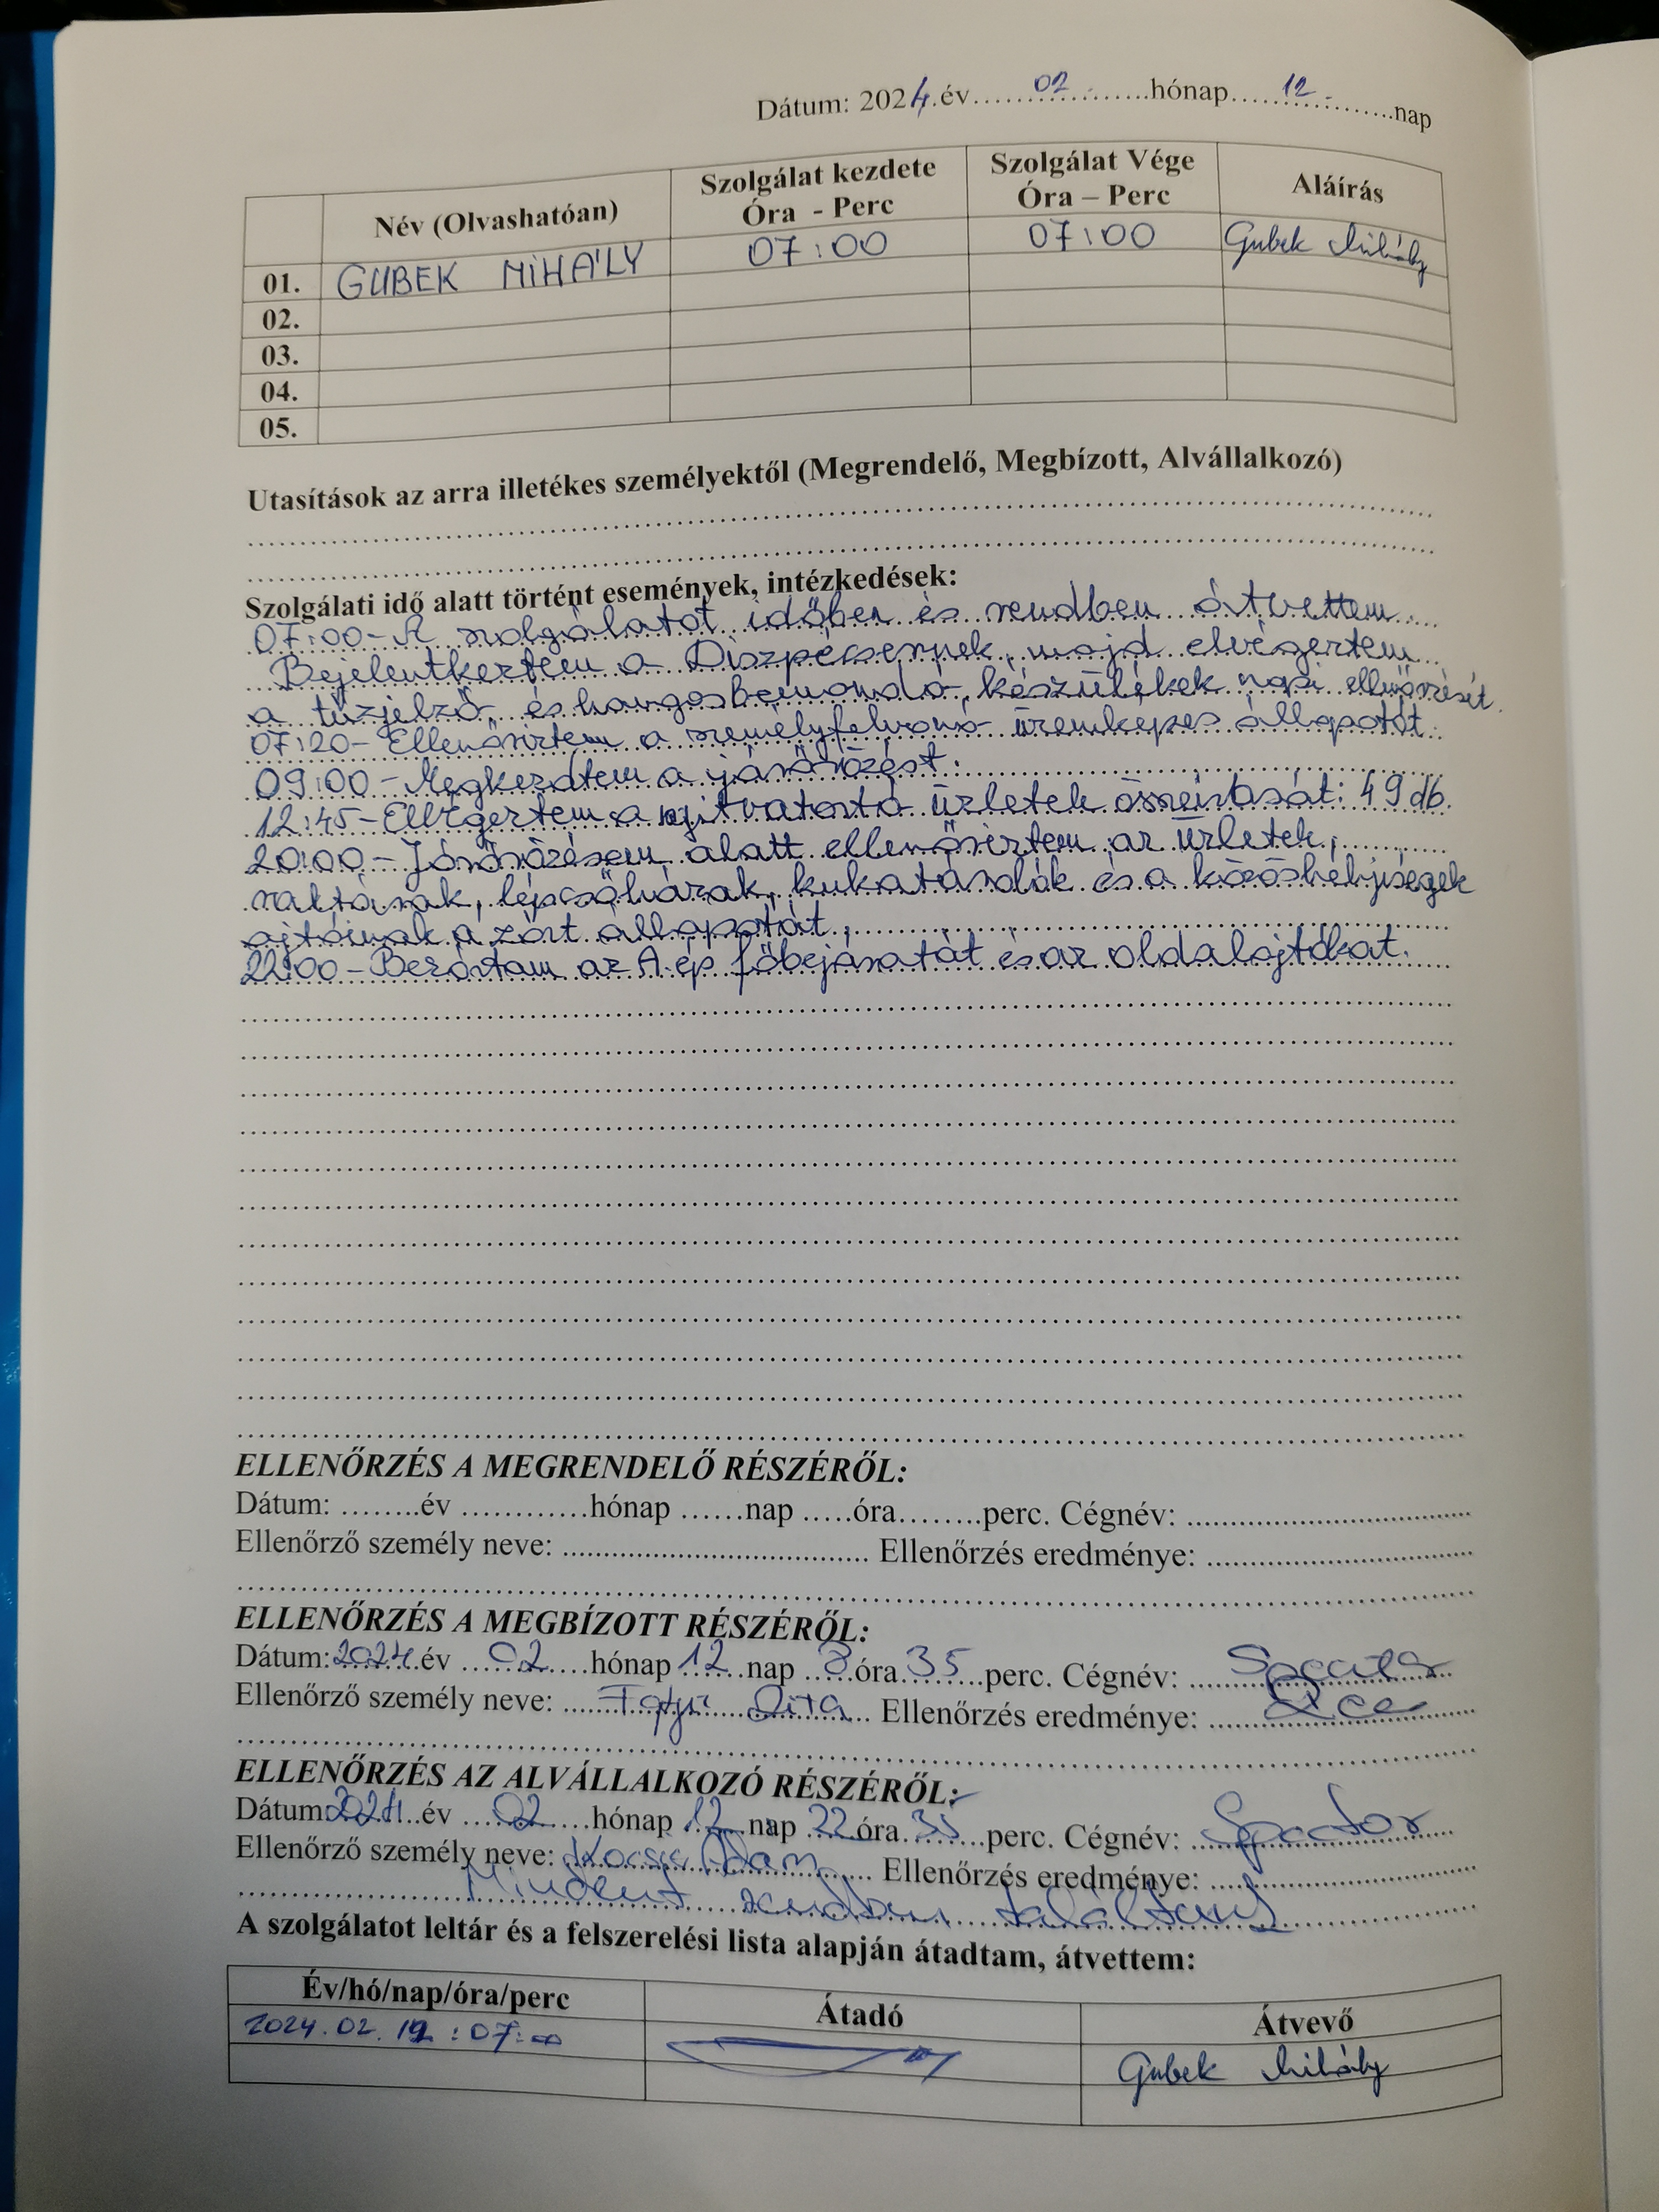 Dátum: 2024.év 02. hónap 12. nap
Név (Olvashatóan) Szolgálat kezdete Óra - Perc Szolgálat Vége Óra – Perc Aláírás
01. GUBEK MIHÁLY 07:00 07:00 Gubek Mihály
02.
03.
04.
05.
Utasítások az arra illetékes személyektől (Megrendelő, Megbízott, Alvállalkozó)
Szolgálati idő alatt történt események, intézkedések:
07:00-A szolgálatot időben és rendben átvettem.
Bejelentkeztem a Diszpécsernek, majd elvégeztem
a tűzjelző és hangosbemondó készülékek napi ellenőrzését.
07:20-Ellenőriztem a személyfelvonó üzemképes állapotát.
09:00-Megkezdtem a járőrözést.
12:45-Elvégeztem a nyitvatartó üzletek összeírását: 49 db.
20:00-Járőrözésem alatt ellenőriztem az üzletek,
raktárak, lépcsőházak, kukatárolók és a közöshelyiségek
ajtóinak a zárt állapotát.
22:00-Bezártam az A.ép főbejáratát és az oldalajtókat.
ELLENŐRZÉS A MEGRENDELŐ RÉSZÉRŐL:
Dátum: ........év ............hónap ......nap .....óra........perc. Cégnév: ........................................
Ellenőrző személy neve: ........................................... Ellenőrzés eredménye: ......................................
ELLENŐRZÉS A MEGBÍZOTT RÉSZÉRŐL:
Dátum: 2024.év 02 hónap 12 nap 8 óra 35 perc. Cégnév:
Ellenőrző személy neve: Rita Ellenőrzés eredménye:
ELLENŐRZÉS AZ ALVÁLLALKOZÓ RÉSZÉRŐL:
Dátum: 2024.év 02 hónap 12 nap 22 óra 35 perc. Cégnév:
Ellenőrző személy neve: Kocsis Ádám Ellenőrzés eredménye:
Mindent rendben találtam
A szolgálatot leltár és a felszerelési lista alapján átadtam, átvettem:
Év/hó/nap/óra/perc Átadó Átvevő
2024.02.12 :07:00 Gubek Mihály